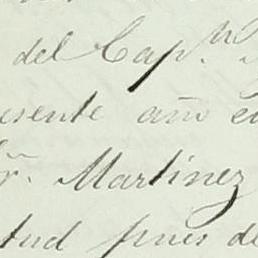 del Cap.n
esente año e
r. Martinez
tud pues de